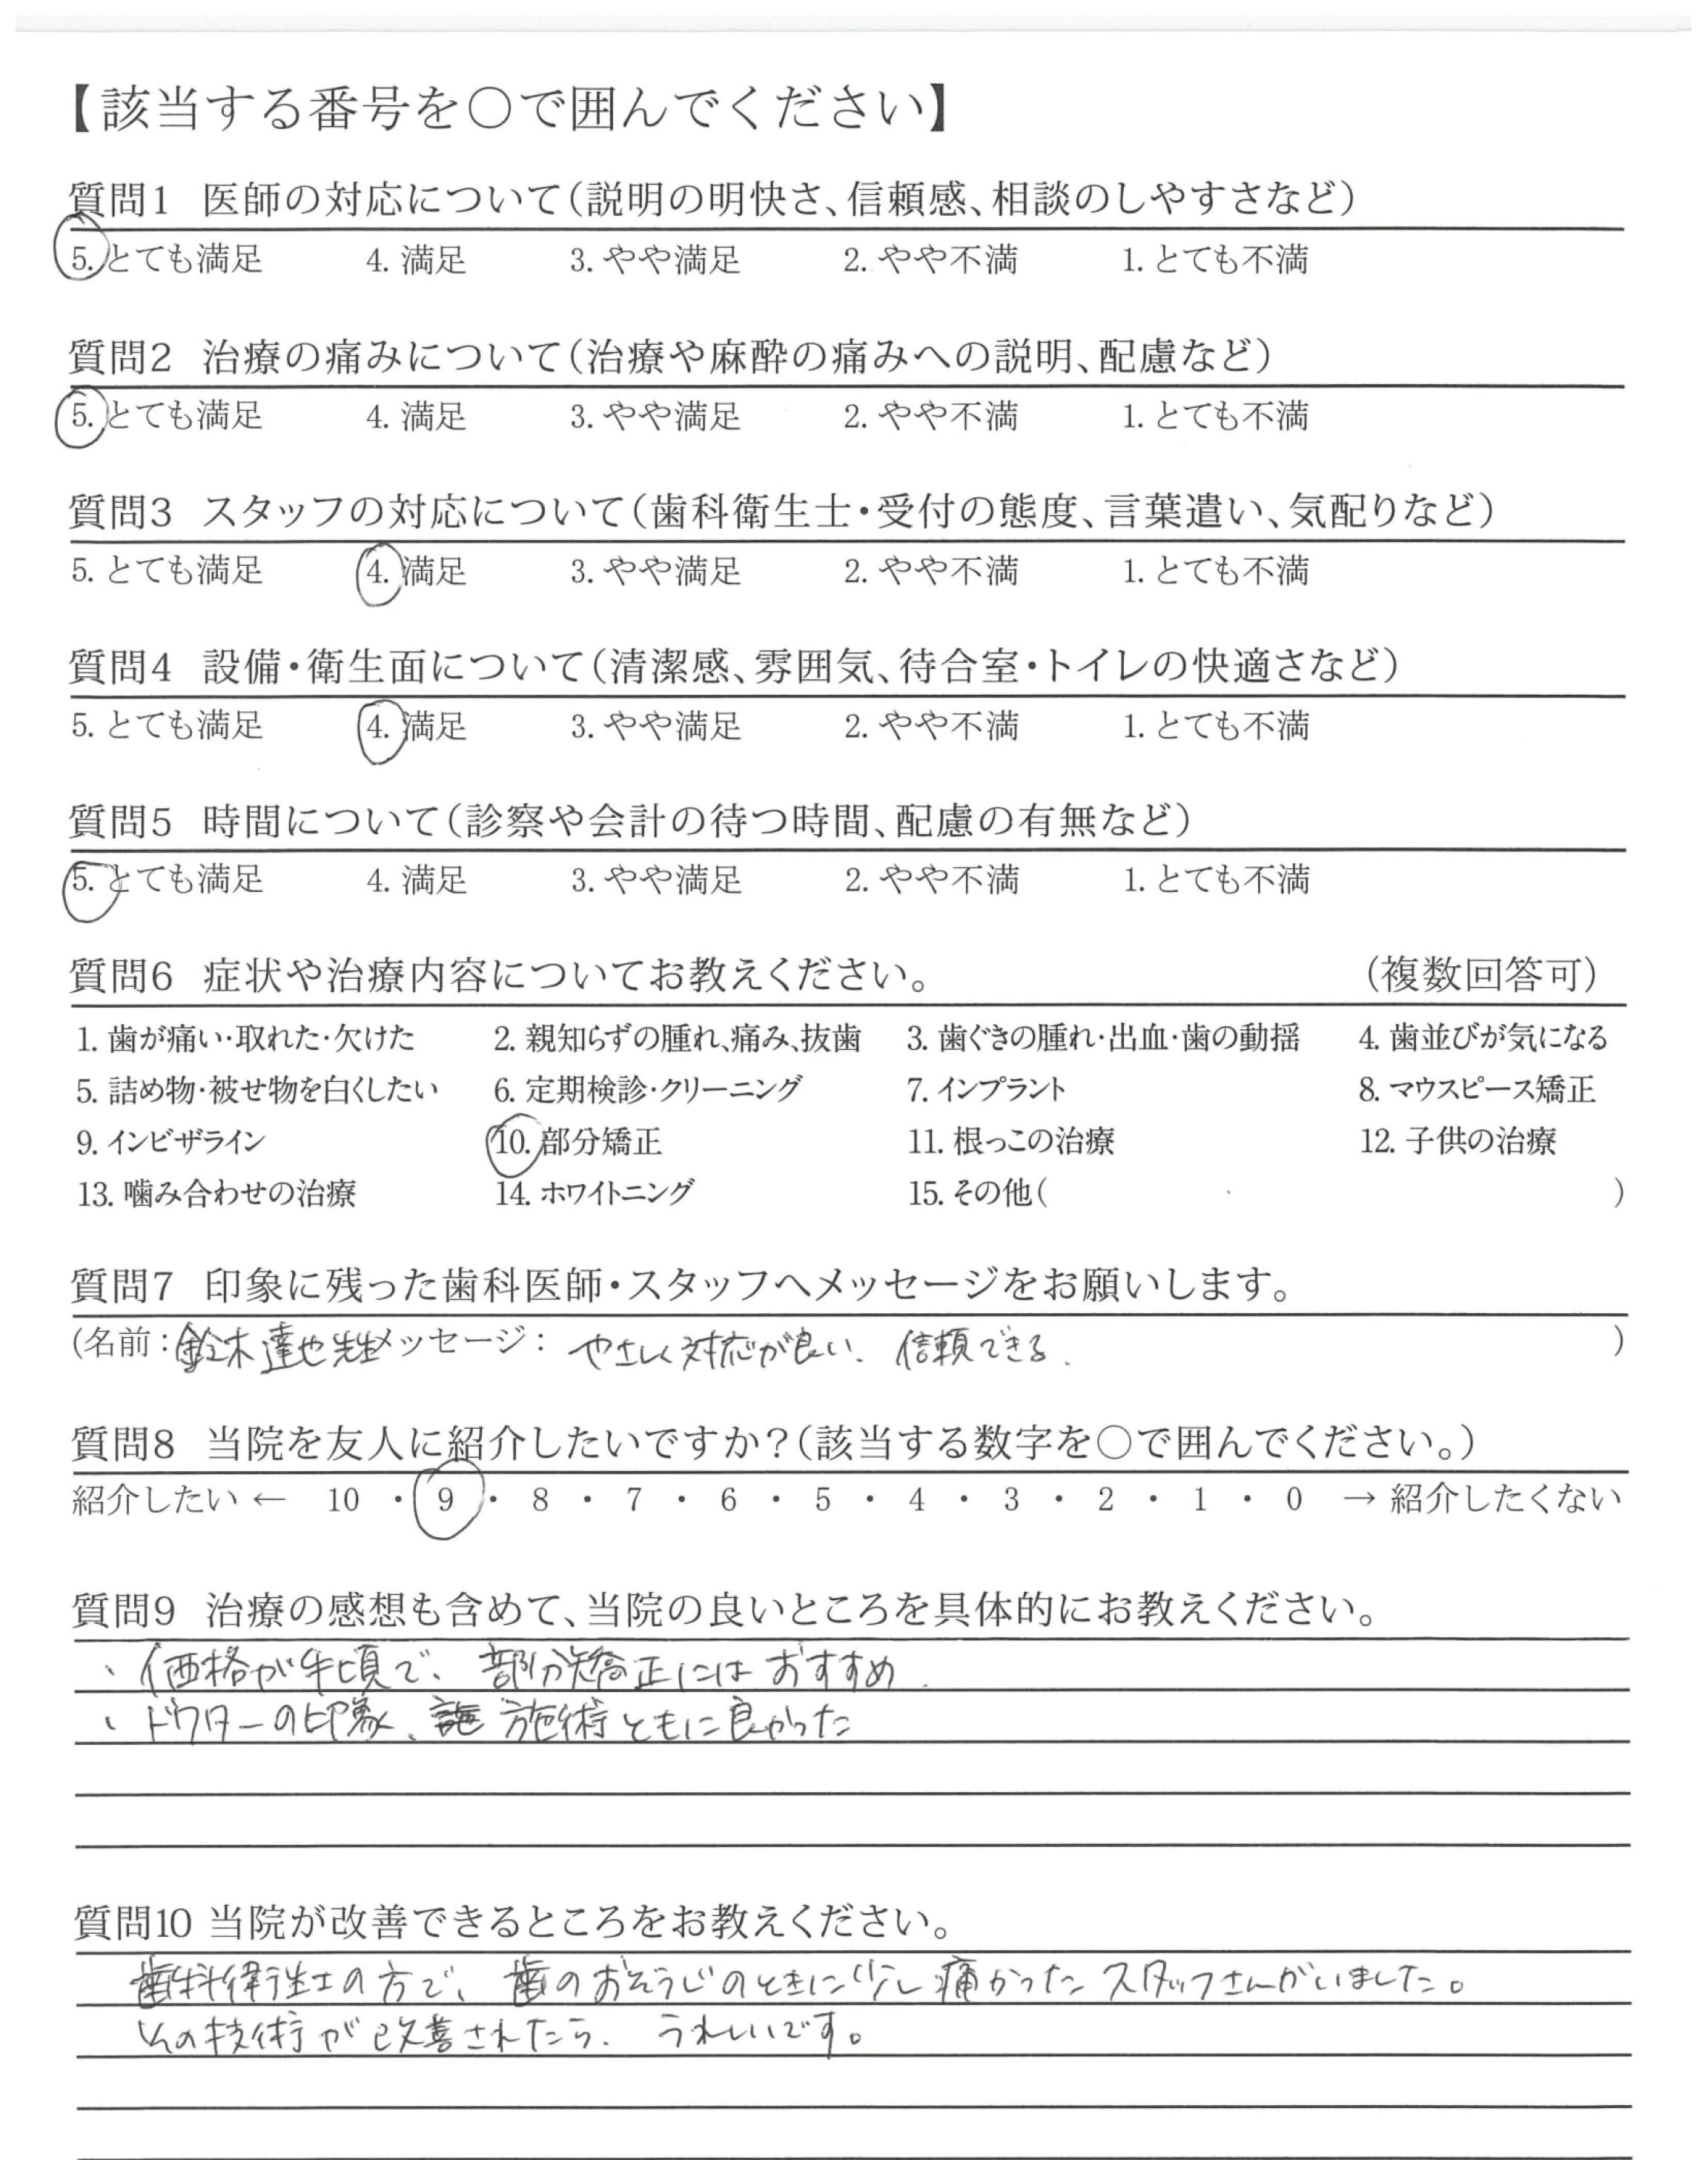 【該当する番号を〇で囲んでください】
質問1 医師の対応について(説明の明快さ、信頼感、相談のしやすさなど)
5. とても満足 4. 満足 3. やや満足 2. やや不満 1. とても不満
質問2 治療の痛みについて(治療や麻酔の痛みへの説明、配慮など)
5. とても満足 4. 満足 3. やや満足 2. やや不満 1. とても不満
質問3 スタッフの対応について(歯科衛生士・受付の態度、言葉遣い、気配りなど)
5. とても満足 4. 満足 3. やや満足 2. やや不満 1. とても不満
質問4 設備・衛生面について(清潔感、雰囲気、待合室・トイレの快適さなど)
5. とても満足 4. 満足 3. やや満足 2. やや不満 1. とても不満
質問5 時間について(診察や会計の待つ時間、配慮の有無など)
5. とても満足 4. 満足 3. やや満足 2. やや不満 1. とても不満
質問6 症状や治療内容についてお教えください。 (複数回答可)
1. 歯が痛い・取れた・欠けた 2. 親知らずの腫れ、痛み、抜歯 3. 歯ぐきの腫れ・出血・歯の動揺 4. 歯並びが気になる
5. 詰め物・被せ物を白くしたい 6. 定期検診・クリーニング 7. インプラント 8. マウスピース矯正
9. インビザライン 10. 部分矯正 11. 根っこの治療 12. 子供の治療
13. 噛み合わせの治療 14. ホワイトニング 15. その他( )
質問7 印象に残った歯科医師・スタッフへメッセージをお願いします。
(名前:鈴木達也先生メッセージ: やさしく対応が良い、信頼できる. )
質問8 当院を友人に紹介したいですか?(該当する数字を〇で囲んでください。)
紹介したい ← 10 ・ 9 ・ 8 ・ 7 ・ 6 ・ 5 ・ 4 ・ 3 ・ 2 ・ 1 ・ 0 → 紹介したくない
質問9 治療の感想も含めて、当院の良いところを具体的にお教えください。
・価格が手頃で、部分矯正にはおすすめ.
・ドクターの印象、施術ともに良かった
質問10 当院が改善できるところをお教えください。
歯科衛生士の方で、歯のおそうじのときに少し痛かったスタッフさんがいました。
その技術が改善されたら、うれしいです。